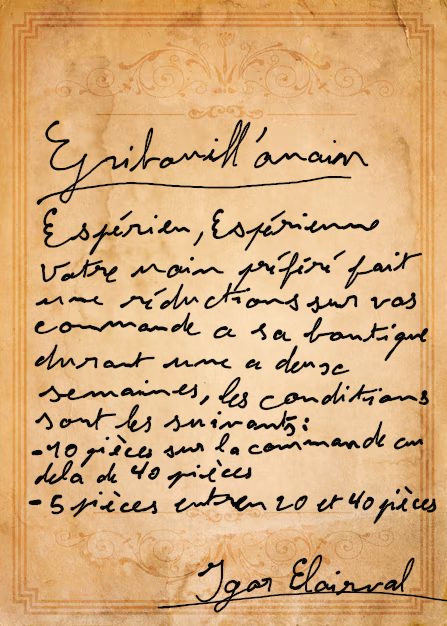 Gribouill'anain
Espérien, Espérienne
Votre nain préféré fait
une réductions sur vos
commande a sa boutique
durant une a deux
semaines, les conditions
sont les suivants:
-10 pièces sur la commande au
dela de 40 pièces
-5 pièces entren 20 et 40 pièces
Igor Elairval